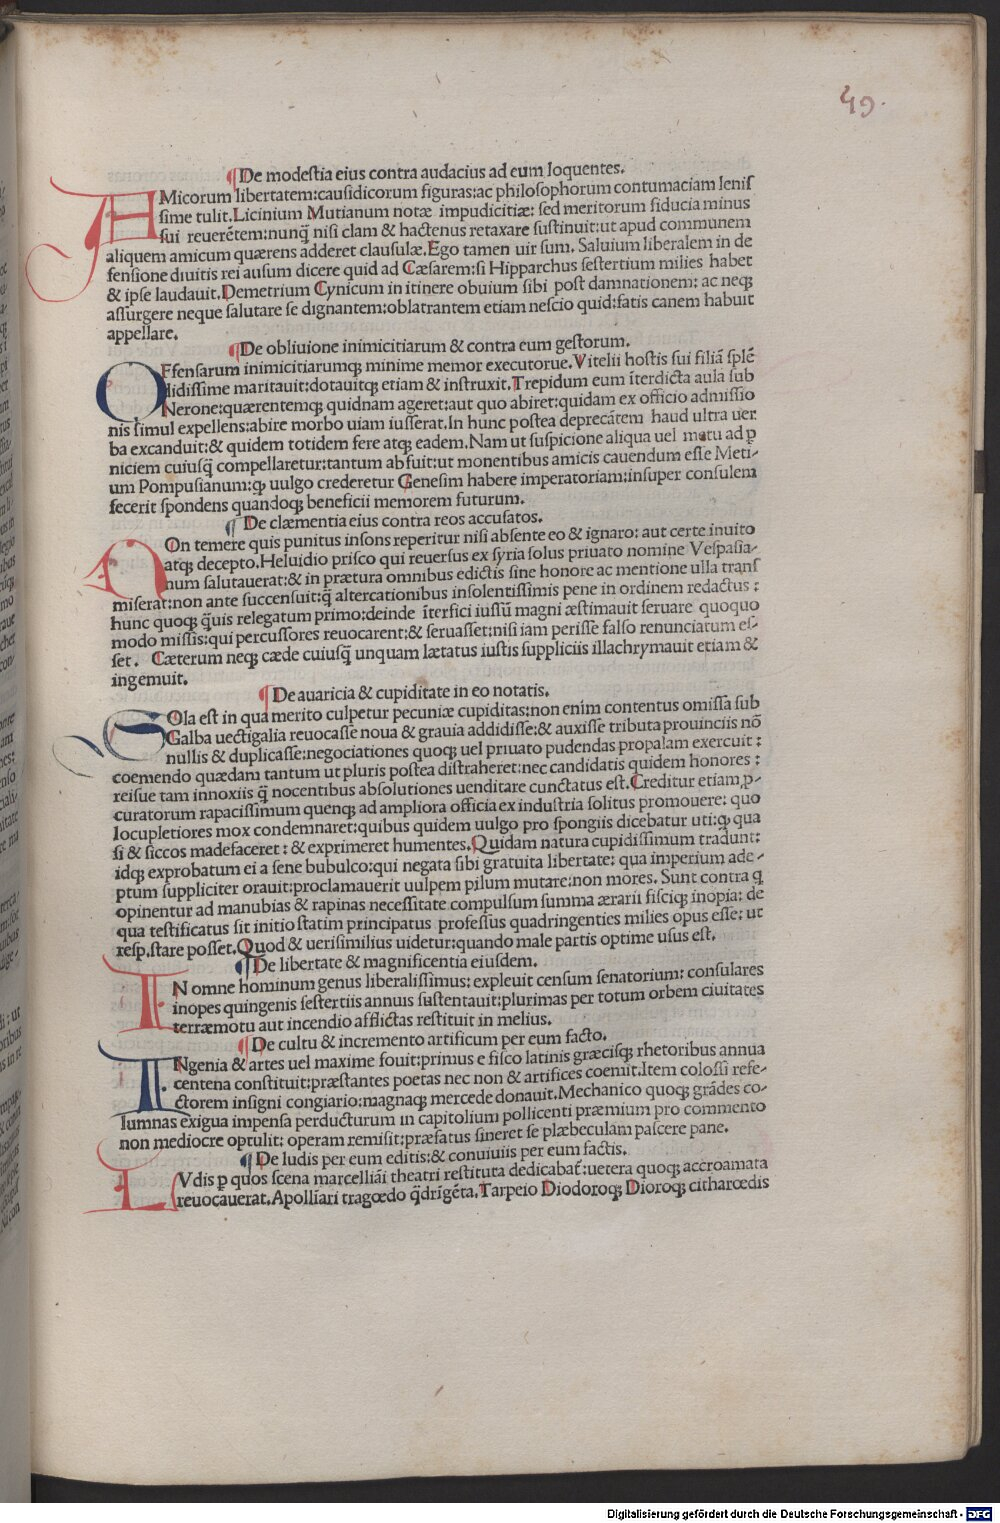 49.
¶De modestia eius contra audacius ad eum loquentes.
AMicorum libertatem:causidicorum figuras:ac philosophorum contumaciam lenis
sime tulit.Licinium Mutianum notæ impudicitiæ: sed meritorum fiducia minus
sui reuerẽtem:nunq̃ nisi clam & hactenus retaxare sustinuit:ut apud communem
aliquem amicum quærens adderet clausulæ.Ego tamen uir sum. Saluium liberalem in de
fensione diuitis rei ausum dicere quid ad Cæsarem:si Hipparchus sestertium milies habet
& ipse laudauit.Demetrium Cynicum in itinere obuium sibi post damnationem: ac neqꝫ
assurgere neque salutare se dignantem:oblatrantem etiam nescio quid:satis canem habuit
appellare.
¶De obliuione inimicitiarum & contra eum gestorum.
OFfensarum inimicitiarumqꝫ minime memor executorue.Vitelii hostis sui filiã splẽ
didissime maritauit:dotauitqꝫ etiam & instruxit.Trepidum eum ĩterdicta aula sub
Nerone:quærentemqꝫ quidnam ageret:aut quo abiret:quidam ex officio admissio
nis simul expellens:abire morbo uiam iusserat.In hunc postea deprecãtem haud ultra uer
ba excanduit:& quidem totidem fere atqꝫ eadem.Nam ut suspicione aliqua uel metu ad ꝑ
niciem cuiusq̃ compellaretur:tantum abfuit:ut monentibus amicis cauendum esse Meti-
um Pompusianum:ꝙ uulgo crederetur Genesim habere imperatoriam:insuper consulem
fecerit spondens quandoqꝫ beneficii memorem futurum.
¶ De clæmentia eius contra reos accusatos.
NOn temere quis punitus insons reperitur nisi absente eo & ignaro: aut certe inuito
atqꝫ decepto.Heluidio prisco qui reuersus ex syria solus priuato nomine Vespasia-
num salutauerat:& in prætura omnibus edictis sine honore ac mentione ulla trans
miserat:non ante succensuit:q̃ altercationibus insolentissimis pene in ordinem redactus :
hunc quoqꝫ q̃uis relegatum primo:deinde ĩterfici iussũ magni æstimauit seruare quoquo
modo missis:qui percussores reuocarent:& seruasset:nisi iam perisse falso renunciatum es-
set. Cæterum neqꝫ cæde cuiusq̃ unquam lætatus iustis suppliciis illachrymauit etiam &
ingemuit.
¶De auaricia & cupiditate in eo notatis.
SOla est in qua merito culpetur pecuniæ cupiditas:non enim contentus omissa sub
Galba uectigalia reuocasse noua & grauia addidisse:& auxisse tributa prouinciis nõ
nullis & duplicasse:negociationes quoqꝫ uel priuato pudendas propalam exercuit :
coemendo quædam tantum ut pluris postea distraheret:nec candidatis quidem honores :
reisue tam innoxiis q̃ nocentibus absolutiones uenditare cunctatus est.Creditur etiam ꝓ-
curatorum rapacissimum quenqꝫ ad ampliora officia ex industria solitus promouere: quo
locupletiores mox condemnaret:quibus quidem uulgo pro spongiis dicebatur uti:ꝙ qua
si & siccos madefaceret : & exprimeret humentes.Quidam natura cupidissimum tradunt:
idqꝫ exprobatum ei a sene bubulco:qui negata sibi gratuita libertate: qua imperium ade-
ptum suppliciter orauit:proclamauerit uulpem pilum mutare:non mores. Sunt contra q
opinentur ad manubias & rapinas necessitate compulsum summa ærarii fisciqꝫ inopia: de
qua testificatus sit initio statim principatus professus quadringenties milies opus esse: ut
resp.stare posset.Quod & uerisimilius uidetur:quando male partis optime usus est.
¶De libertate & magnificentia eiusdem.
IN omne hominum genus liberalissimus: expleuit censum senatorium: consulares
inopes quingenis sestertiis annuis sustentauit:plurimas per totum orbem ciuitates
terræmotu aut incendio afflictas restituit in melius.
¶De cultu & incremento artificum per eum facto.
INgenia & artes uel maxime fouit:primus e fisco latinis græcisqꝫ rhetoribus annua
centena constituit:præstantes poetas nec non & artifices coemit.Item colossi refe-
ctorem insigni congiario:magnaqꝫ mercede donauit.Mechanico quoqꝫ grãdes co-
lumnas exigua impensa perducturum in capitolium pollicenti præmium pro commento
non mediocre optulit: operam remisit:præfatus sineret se plæbeculam pascere pane.
¶De ludis per eum editis:& conuiuiis per eum factis.
LVdis ꝑ quos scena marcelliãi theatri restituta dedicabat̃:uetera quoqꝫ accroamata
reuocauerat.Apollĩari tragœdo q̃drĩgẽta.Tarpeio Diodoroqꝫ Dioroqꝫ citharœdis
Digitalisierung gefördert durch die Deutsche Forschungsgemeinschaft - DFG